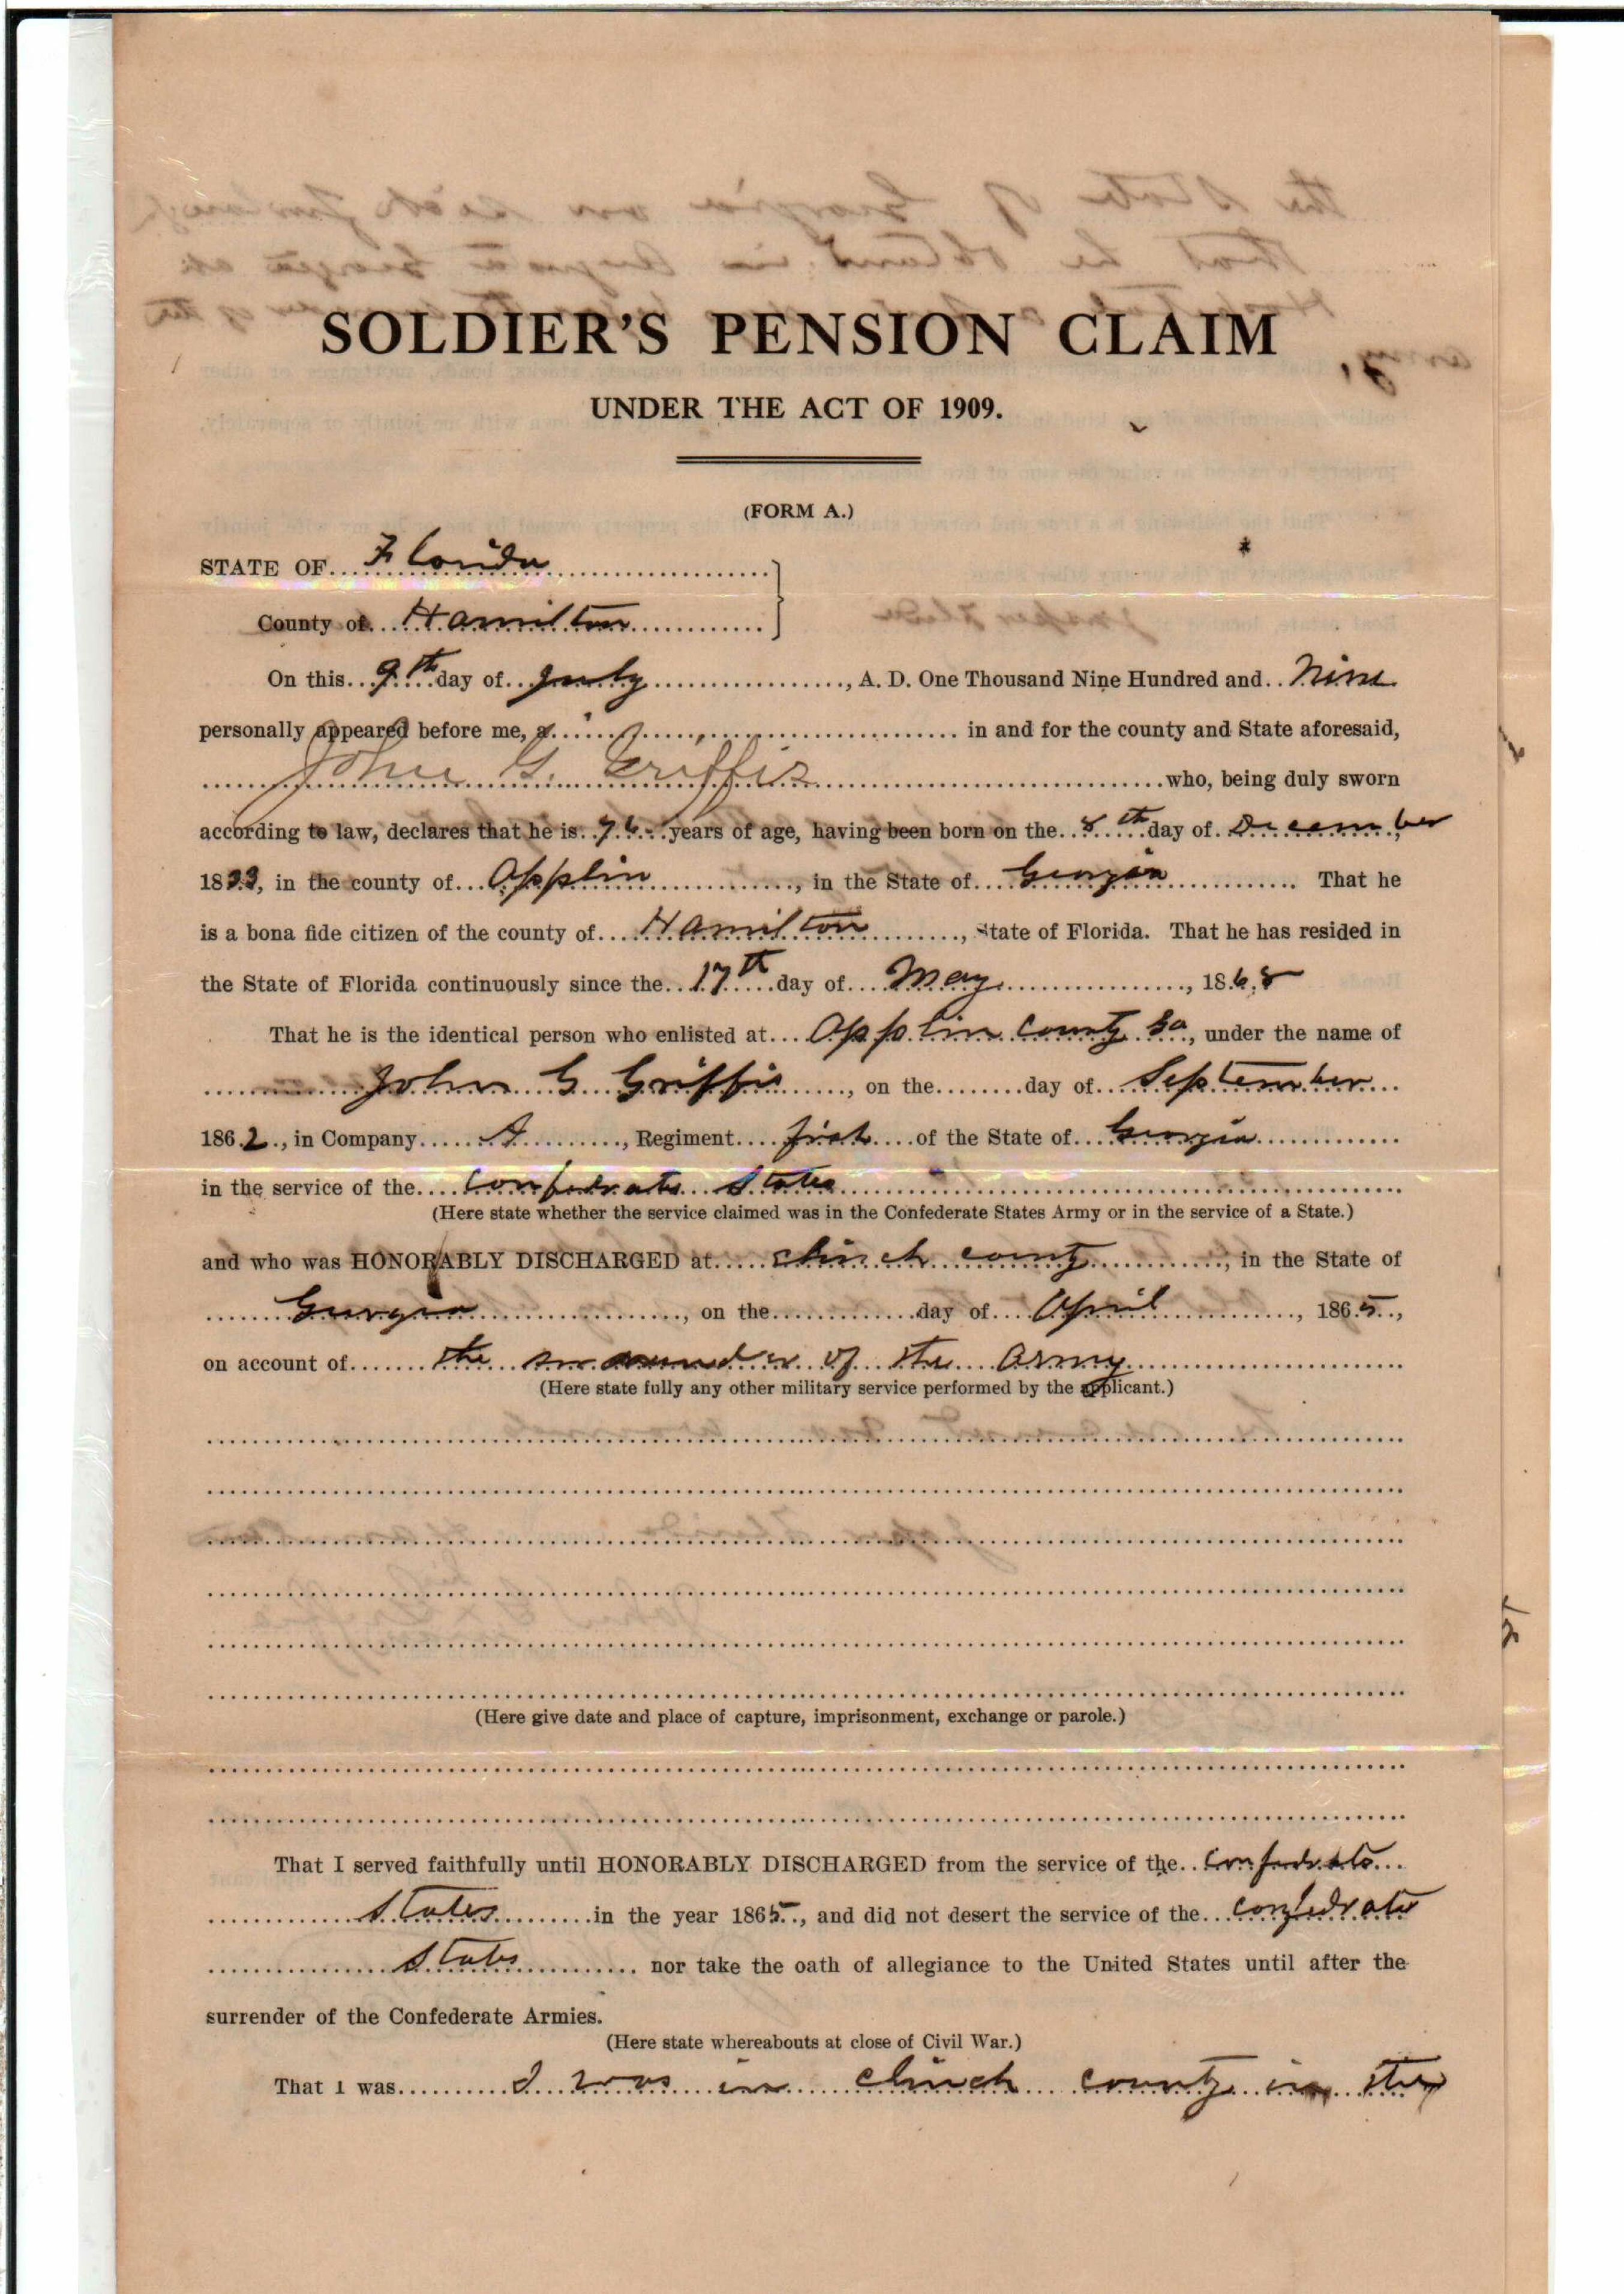 SOLDIER'S PENSION CLAIM
UNDER THE ACT OF 1909.
(FORM A.)
STATE OF Florida
County of Hamilton
On this 9th day of July, A. D. One Thousand Nine Hundred and Nine
personally appeared before me, a in and for the county and State aforesaid,
John G. Griffis who, being duly sworn
according to law, declares that he is 76 years of age, having been born on the 8th day of December
1833, in the county of Applin, in the State of Georgia. That he
is a bona fide citizen of the county of Hamilton, State of Florida. That he has resided in
the State of Florida continuously since the 17th day of May, 1868
That he is the identical person who enlisted at Applin County Ga, under the name of
John G Griffis, on the day of September
1862, in Company A, Regiment first of the State of Georgia
in the service of the Confedrate States
(Here state whether the service claimed was in the Confederate States Army or in the service of a State.)
and who was HONORABLY DISCHARGED at clinch county, in the State of
Georgia, on the day of April, 1865,
on account of the of the Army
(Here state fully any other military service performed by the applicant.)
(Here give date and place of capture, imprisonment, exchange or parole.)
That I served faithfully until HONORABLY DISCHARGED from the service of the Confedrate
States in the year 1865, and did not desert the service of the confedrate
States nor take the oath of allegiance to the United States until after the
surrender of the Confederate Armies.
(Here state whereabouts at close of Civil War.)
That I was I was in clinch county in the